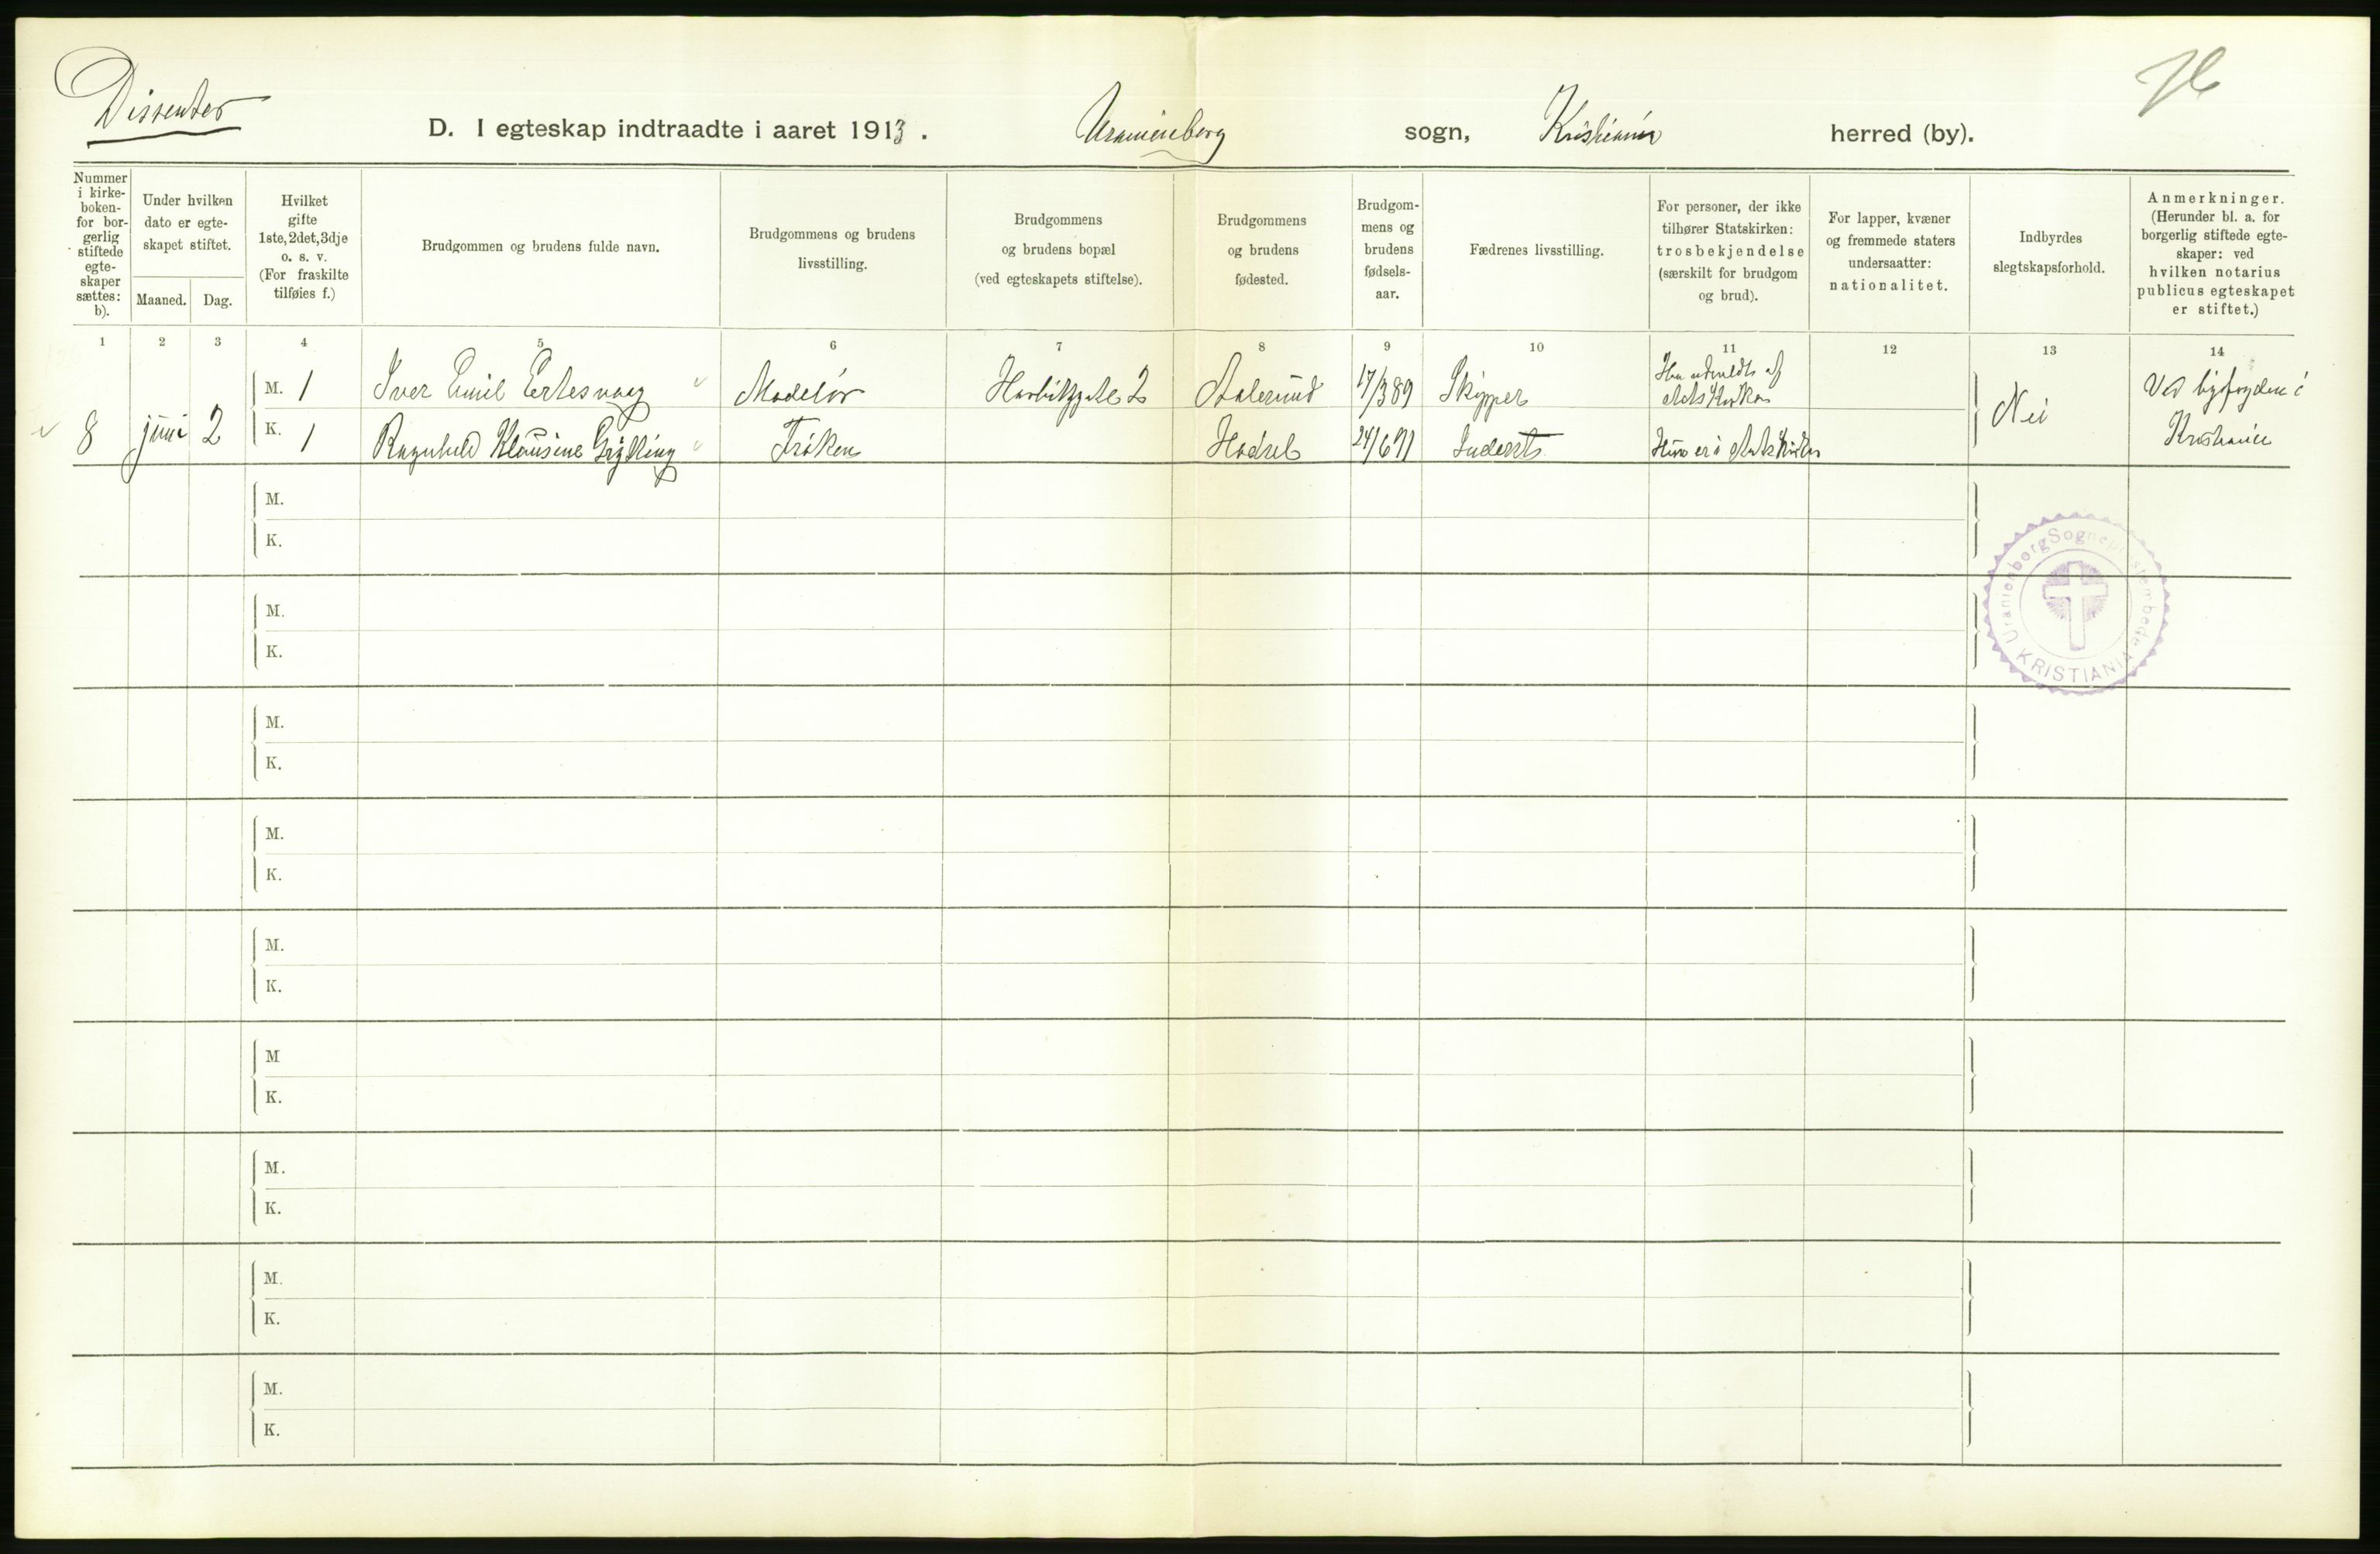 Dissenter
D. I egteskap indtraadte i aaret 1913. Uranienborg sogn, Kristiania herred (by).
Nummer i kirke-boken- for bor-gerlig stiftede egte-skaper sættes: b).
Under hvilken dato er egte-skapet stiftet.
Maaned. Dag.
Hvilket gifte 1ste, 2det, 3dje o. s. v. (For fraskilte tilføies f.)
Brudgommen og brudens fulde navn.
Brudgommens og brudens livsstilling.
Brudgommens og brudens bopæl (ved egteskapets stiftelse).
Brudgommens og brudens fødested.
Brudgom-mens og brudens fødsels-aar.
Fædrenes livsstilling.
For personer, der ikke tilhører Statskirken: trosbekjendelse (særskilt for brudgom og brud).
For lapper, kvæner og fremmede staters undersaatter: nationalitet.
Indbyrdes slegtskapsforhold.
Anmerkninger. (Herunder bl. a. for borgerlig stiftede egte-skaper: ved hvilken notarius publicus egteskapet er stiftet.)
1 2 3 4 5 6 7 8 9 10 11 12 13 14
M. 1 Iver Emil Ertesvaag Modelør 2 Aalesund 17/3 89 Skipper Han udmeldt af Statskirken
8 juni 2 K. 1 Ragnhild Klausine Grytting Frøken Hadsel 24/6 91 Hun er i Statskirken
Nei
Ved byfogden i Kristiania
M.
K.
M.
K.
M.
K.
M.
K.
M.
K.
M
K.
M.
K.
M.
K.
M.
K.
Uranienborg Sogneprestembede
KRISTIANIA